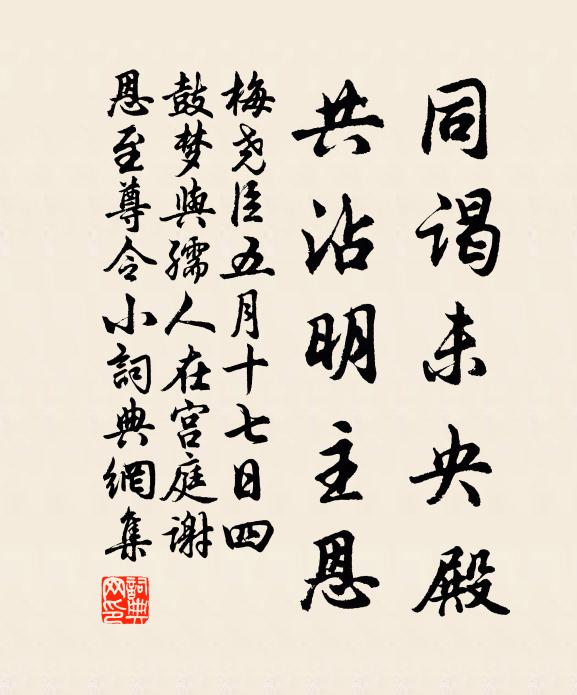 同谒未央殿
共沾明主恩
梅尧臣五月十七日四
鼓梦與孺人在宫庭谢
恩至尊令小詞典網集
詞典網印